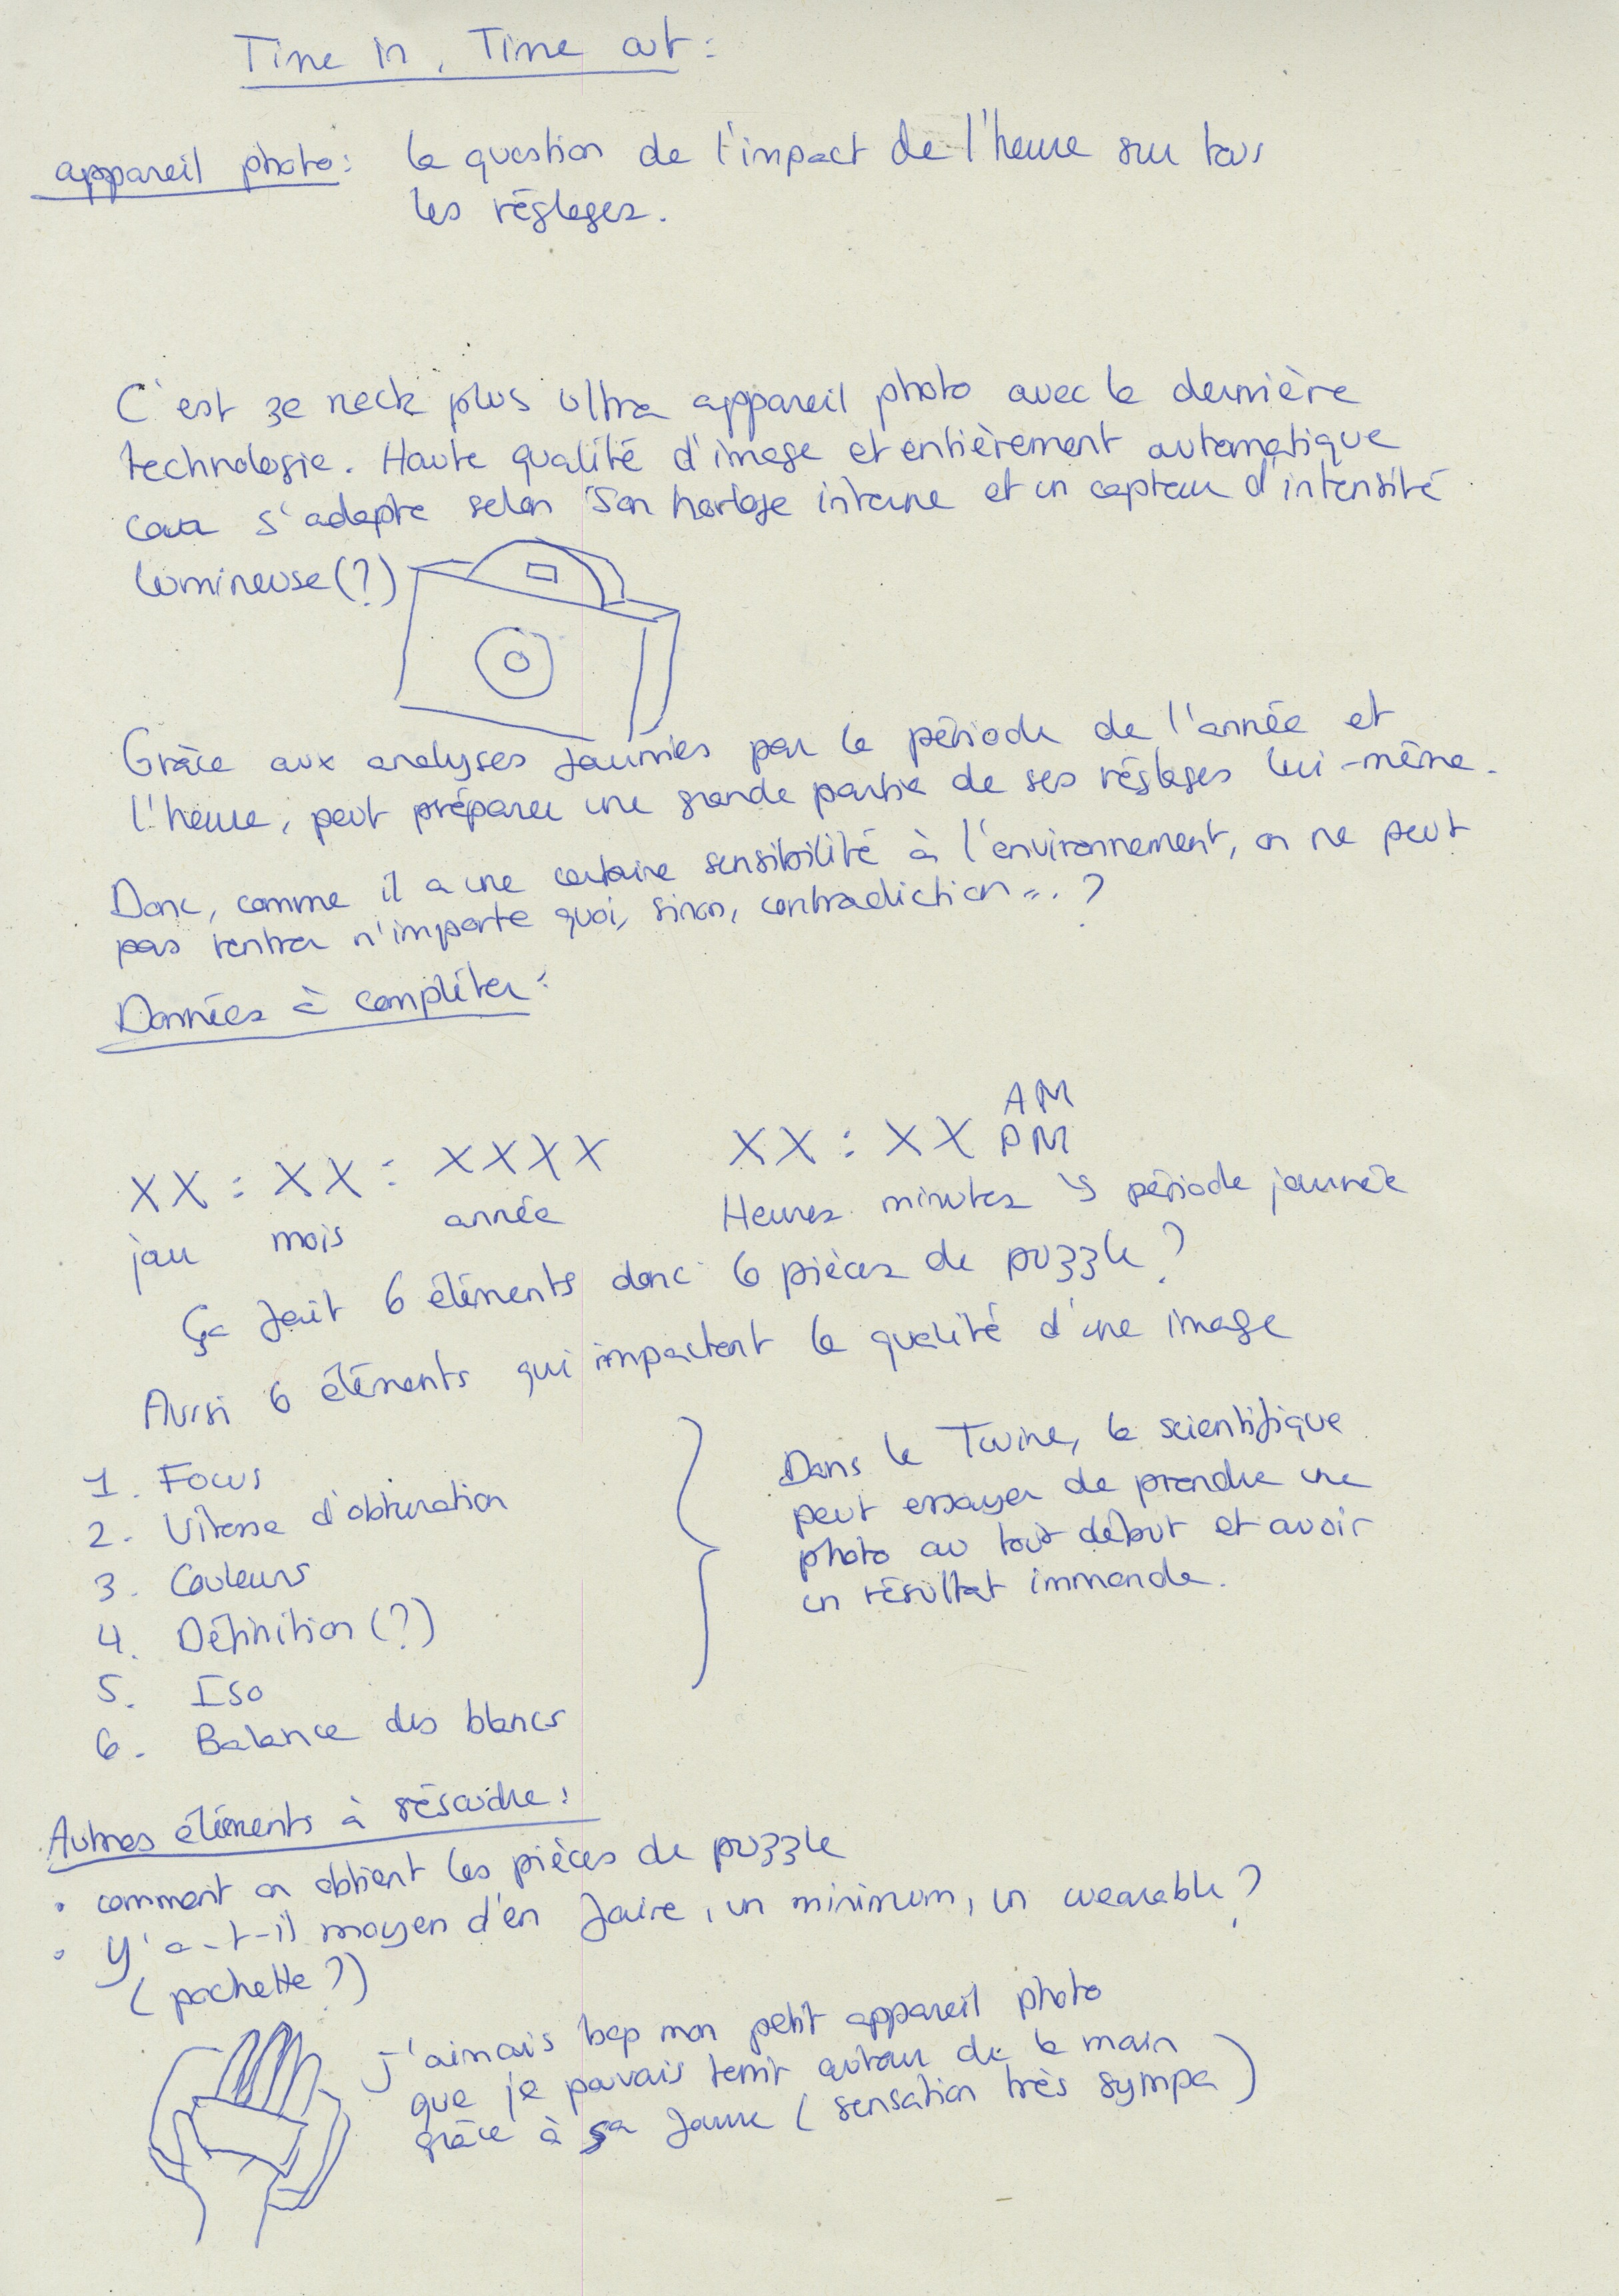 Time in, Time out :
appareil photo : la question de l'impact de l'heure sur tous
les réglages.
C'est ze neck plus ultra appareil photo avec la dernière
technologie. Haute qualité d'image et entièrement automatique
car s'adapte selon son horloge interne et un capteur d'intensité
lumineuse (?)
Grâce aux analyses fournies par la période de l'année et
l'heure, peut préparer une grande partie de ses réglages lui-même.
Donc, comme il a une certaine sensibilité à l'environnement, on ne peut
pas rentrer n'importe quoi, sinon, contradiction... ?
Données à compléter :
XX : XX : XXXX XX : XX AM
PM
jour mois année Heures minutes ↳ période journée
Ça fait 6 éléments donc 6 pièces de puzzle ?
Aussi 6 éléments qui impactent la qualité d'une image
1. Focus
2. Vitesse d'obturation
3. Couleurs
4. Définition (?)
5. Iso
6. Balance des blancs
Dans le Twine, le scientifique
peut essayer de prendre une
photo au tout début et avoir
un résultat immonde.
Autres éléments à résoudre :
• comment on obtient les pièces de puzzle
• y'a-t-il moyen d'en faire, un minimum, un wearable ?
(pochette ?)
J'aimais bcp mon petit appareil photo
que je pouvais tenir autour de la main
grâce à sa forme (sensation très sympa)